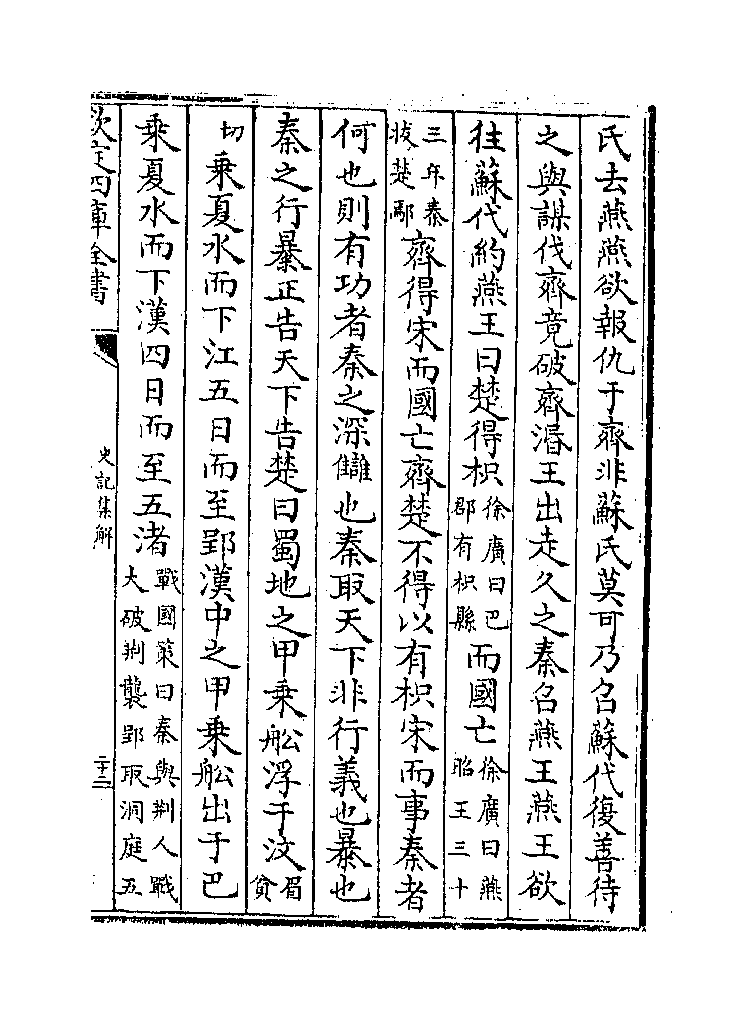 氏去燕燕欲報仇于齊非蘇氏莫可乃召蘇代復善待
之與謀伐齊竟破齊湣王出走久之秦召燕王燕王欲
往蘇代約燕王曰楚得枳徐廣曰巴郡有枳縣而國亡徐廣曰燕昭王三十
三年秦拔楚鄢齊得宋而國亡齊楚不得以有枳宋而事秦者
何也則有功者秦之深讎也秦取天下非行義也暴也
秦之行暴正告天下告楚曰蜀地之甲乗舩浮于汶眉貧
切乗夏水而下江五日而至郢漢中之甲乗舩出于巴
乗夏水而下漢四日而至五渚戰國策曰秦與荆人戰大破荆襲郢取洞庭五
欽定四庫全書
史記集解
二十三